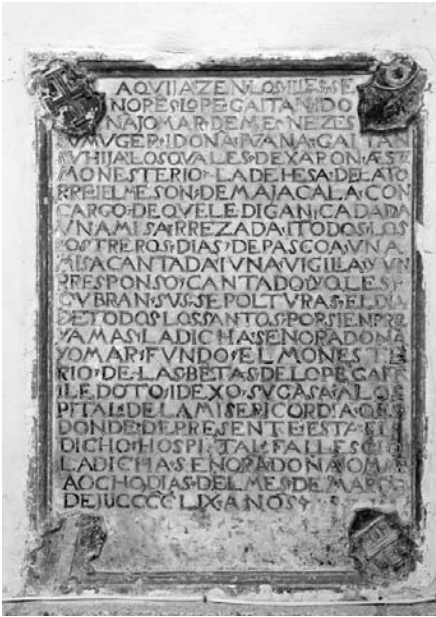 AQVIIAZEN·LOS·ILES·SE
NOPES·LOPE·GAITAN·I·DO
NAJOMAR·DEMENEZES
SVMVGER·I·DONA·IVANA·GAITAN
SVHIJA·LOSQVALES·DEXARON·AESTE
MONESTERIO·LADEHESA·DELATO
RREIELMESON·DEMAJACALA·CON
CARGO·DEQVELEDIGAN·CADADIA
VNAMISARREZADA·ITODOS·LOS
POSTREROS·DIAS·DEPASCOA·VNA
MISACANTADA·IVNAVIGILIA·YVN
RRESPONSO·CANTADO·YQLES
CVBRAN·SVS·SEPOLTVRAS·ELDIA
DETODOSLOSSANTOS·PORSIENPRE
YAMAS·LADICHASENORADONA
YOMAR·FVNDO·ELMONESTE
RIO·DE·LASBETAS·DELOPE·GAIT
ILEDOTO·IDEXO·SVCASA·ALOS
PITAL·DELAMISERICORDIA·QES
DONDE·DEPRESENTE·ESTA·EL
DICHO·HOSPITAL·FALLESCIO
LADICHASENORADONAIOMAR
AOCHODIAS·DELMES·DEMARÇO
DEJUCCCCLIX·ANOS